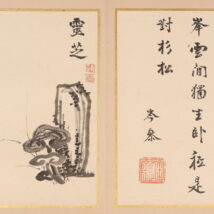 峯雲間獨坐臥祗是
對杉松
岑參
靈芝